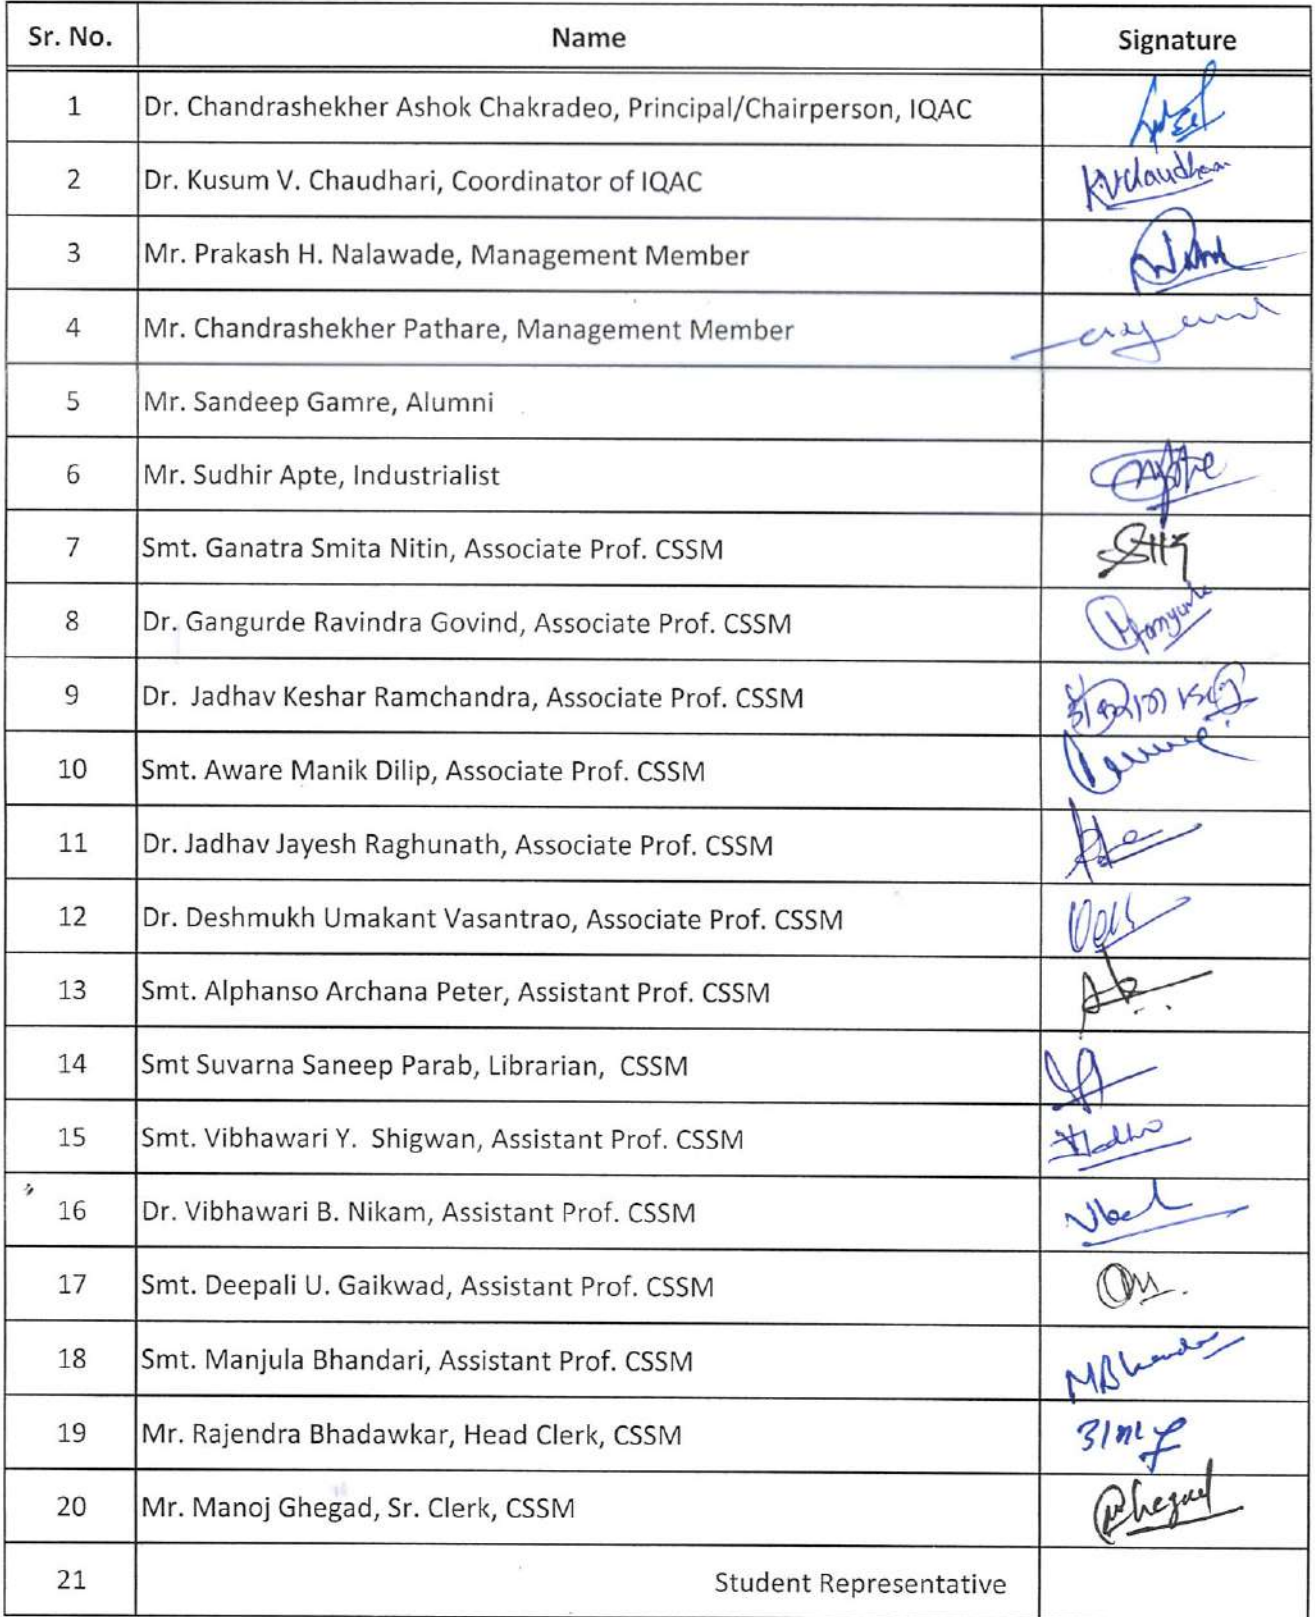 Sr. No. Name Signature
1 Dr. Chandrashekher Ashok Chakradeo, Principal/Chairperson, IQAC
2 Dr. Kusum V. Chaudhari, Coordinator of IQAC KVChaudhari
3 Mr. Prakash H. Nalawade, Management Member
4 Mr. Chandrashekher Pathare, Management Member
5 Mr. Sandeep Gamre, Alumni
6 Mr. Sudhir Apte, Industrialist
7 Smt. Ganatra Smita Nitin, Associate Prof. CSSM
8 Dr. Gangurde Ravindra Govind, Associate Prof. CSSM
9 Dr. Jadhav Keshar Ramchandra, Associate Prof. CSSM
10 Smt. Aware Manik Dilip, Associate Prof. CSSM
11 Dr. Jadhav Jayesh Raghunath, Associate Prof. CSSM
12 Dr. Deshmukh Umakant Vasantrao, Associate Prof. CSSM
13 Smt. Alphanso Archana Peter, Assistant Prof. CSSM
14 Smt Suvarna Saneep Parab, Librarian, CSSM
15 Smt. Vibhawari Y. Shigwan, Assistant Prof. CSSM
16 Dr. Vibhawari B. Nikam, Assistant Prof. CSSM
17 Smt. Deepali U. Gaikwad, Assistant Prof. CSSM
18 Smt. Manjula Bhandari, Assistant Prof. CSSM
19 Mr. Rajendra Bhadawkar, Head Clerk, CSSM
20 Mr. Manoj Ghegad, Sr. Clerk, CSSM
21 Student Representative